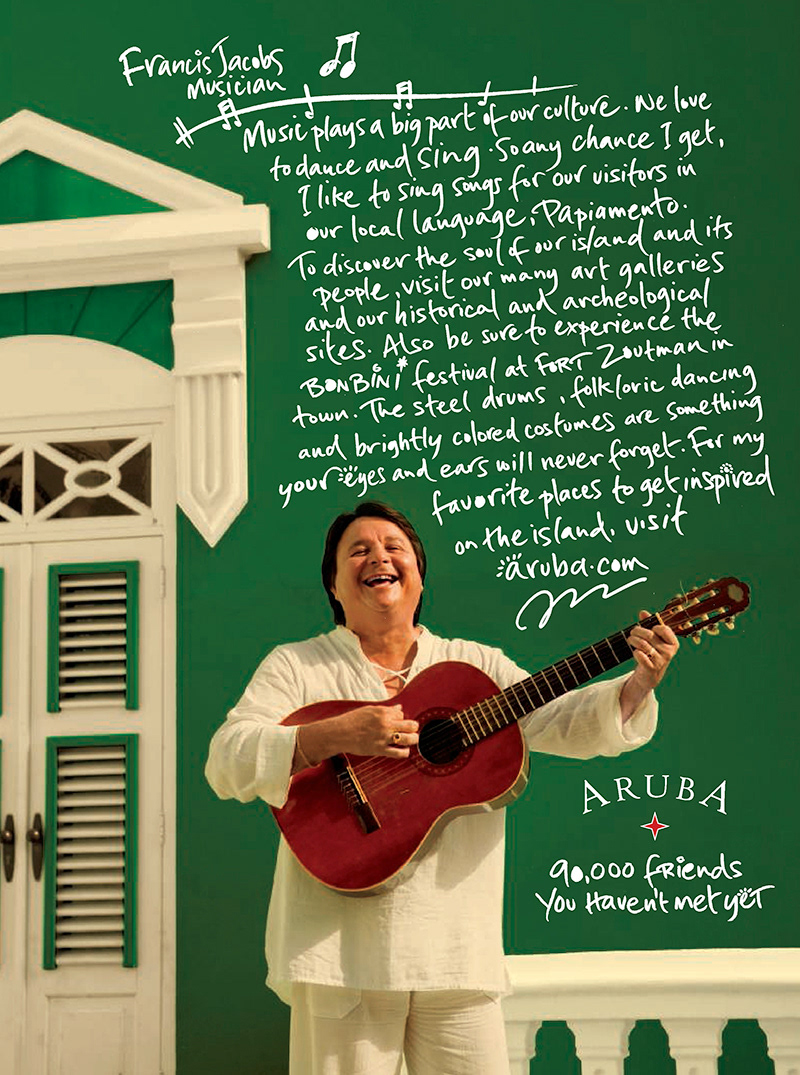 Francis Jacobs
Musician
Music plays a big part of our culture. We love
to dance and sing. So any chance I get,
I like to sing songs for our visitors in
our local language, Papiamento.
To discover the soul of our island and its
people, visit our many art galleries
and our historical and archeological
sites. Also be sure to experience the
BonBini festival at Fort Zoutman in
town. The steel drums, folkloric dancing
and brightly colored costumes are something
your eyes and ears will never forget. For my
favorite places to get inspired
on the island, visit
aruba.com
ARUBA
90,000 friends
You Haven't met yet